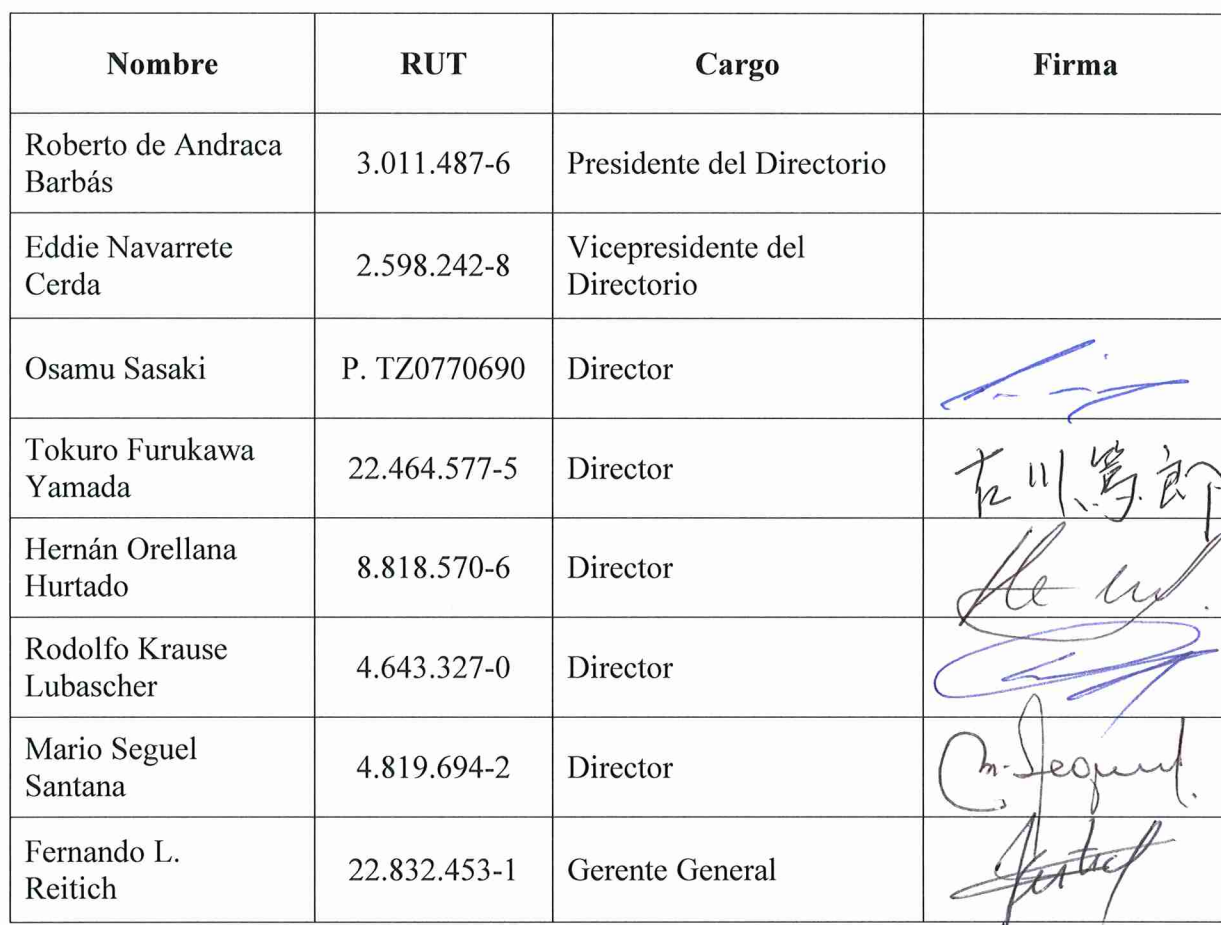 Nombre RUT Cargo Firma
Roberto de Andraca
Barbás
3.011.487-6
Presidente del Directorio
Eddie Navarrete
Cerda
2.598.242-8
Vicepresidente del
Directorio
Osamu Sasaki P. TZ0770690 Director
Tokuro Furukawa
Yamada
22.464.577-5
Director
古川篤郎
Hernán Orellana
Hurtado
8.818.570-6
Director
Rodolfo Krause
Lubascher
4.643.327-0
Director
Mario Seguel
Santana
4.819.694-2
Director
M. Seguel.
Fernando L.
Reitich
22.832.453-1
Gerente General